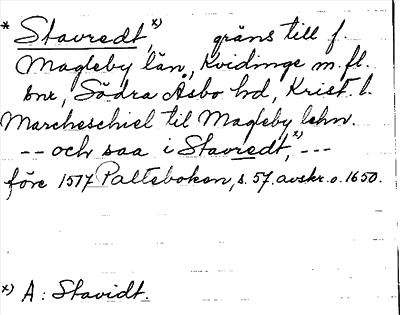 * Stavredt, x) gräns till f.
Magleby län, Kvidinge m.fl.
snr, Södra Åsbo hd, Krist. l.
Marcheschiel til Magleby lehn.
-- och saa i Stavredt, x) ---
före 1517 Paltebokon, s. 57. avskr. o. 1650.
x) A: Stavidt.